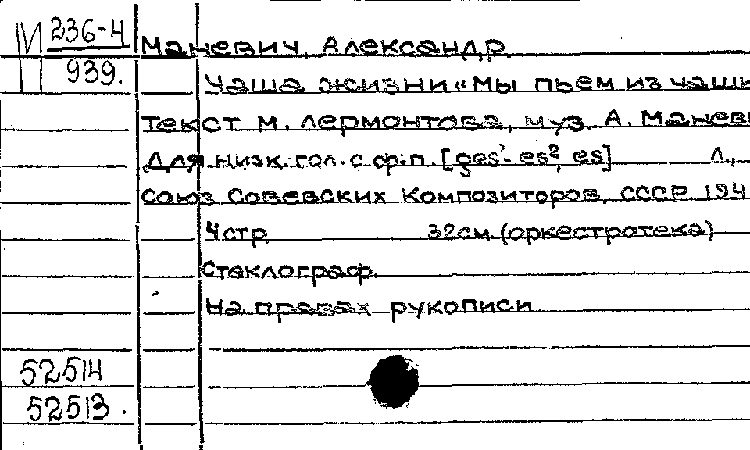 М 236-4
939.
Маневич, Александр
Чаша жизни "Мы пьем из чаши
текст М. Лермонтова, муз. А. Манев
Для низк. гол. с ф.п. [ges¹- es², es] Л.,
Союз Советских Композиторов, СССР 194
4 стр. 32 см. (оркестротека)
Стеклограф.
На правах рукописи
52514
52513.